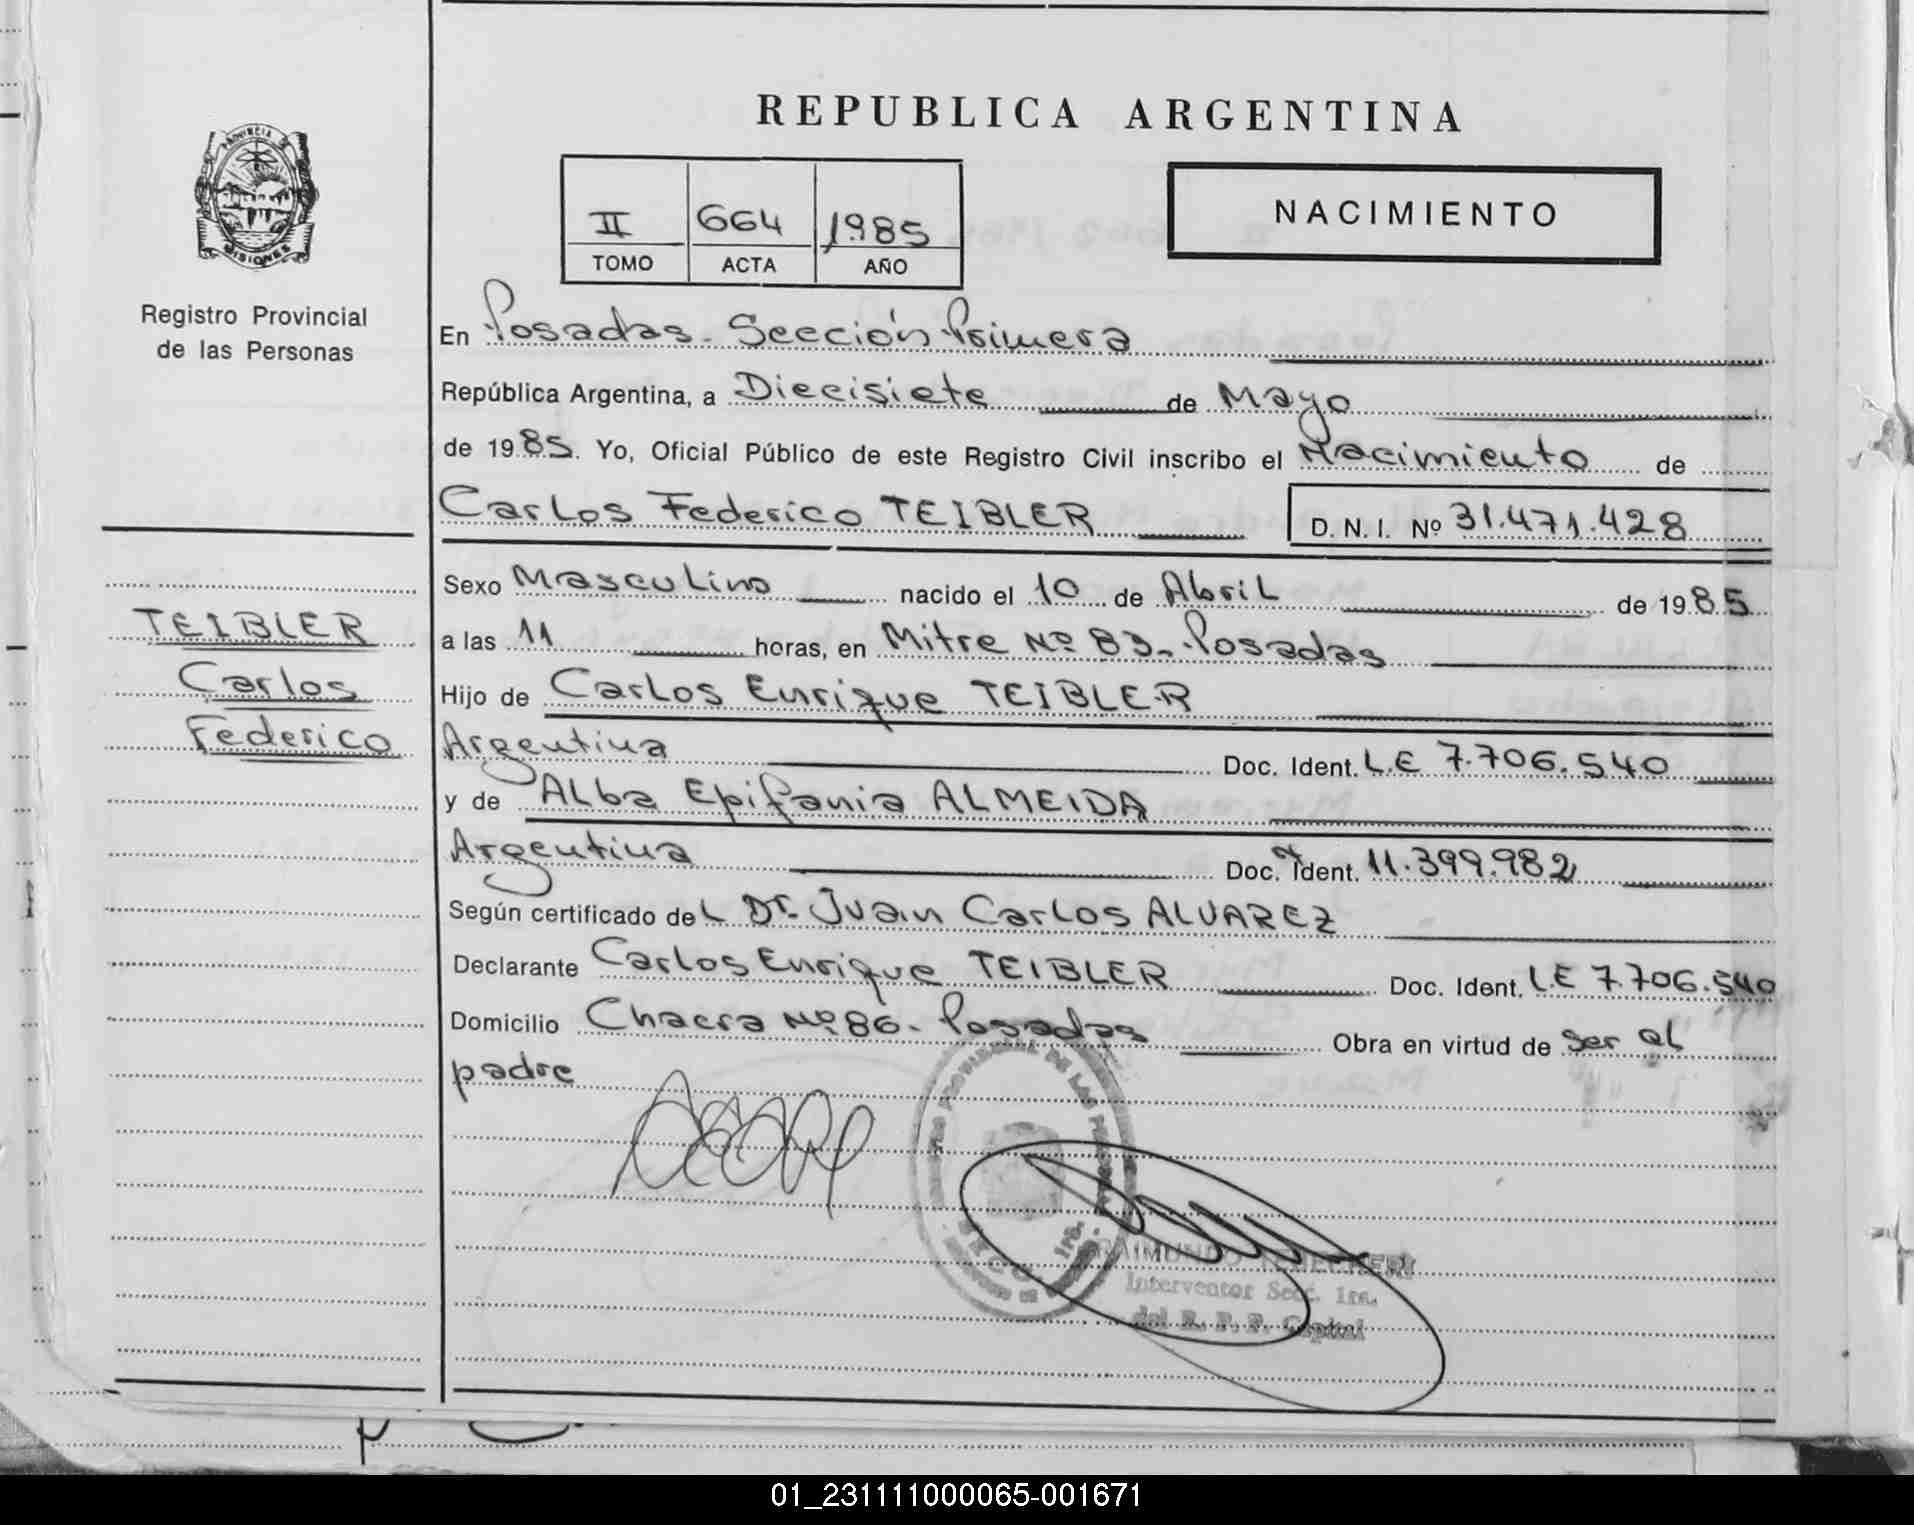 REPUBLICA ARGENTINA
PROVINCIA DE
MISIONES
Registro Provincial
de las Personas
II 664 1985
TOMO ACTA AÑO
NACIMIENTO
En Posadas. Sección Primera
República Argentina, a Diecisiete de Mayo
de 1985. Yo, Oficial Público de este Registro Civil inscribo el Nacimiento de
Carlos Federico TEIBLER D. N. I. Nº 31.471.428
Sexo Masculino nacido el 10 de Abril de 1985
a las 11 horas, en Mitre Nº 83. Posadas
Hijo de Carlos Enrique TEIBLER
Argentina Doc. Ident. L.E 7.706.540
y de Alba Epifania ALMEIDA
Argentina Doc. Ident. 11.399.982
Según certificado del Dr. Juan Carlos ALVAREZ
Declarante Carlos Enrique TEIBLER Doc. Ident. L.E 7.706.540
Domicilio Chacra Nº 86. Posadas Obra en virtud de ser el
padre
TEIBLER
Carlos
Federico
PROVINCIAL DE LAS PERSONAS
SECC. 1ra.
RAIMUNDO
Interventor Secc. 1ra.
del R. P. P. Capital
01_231111000065-001671